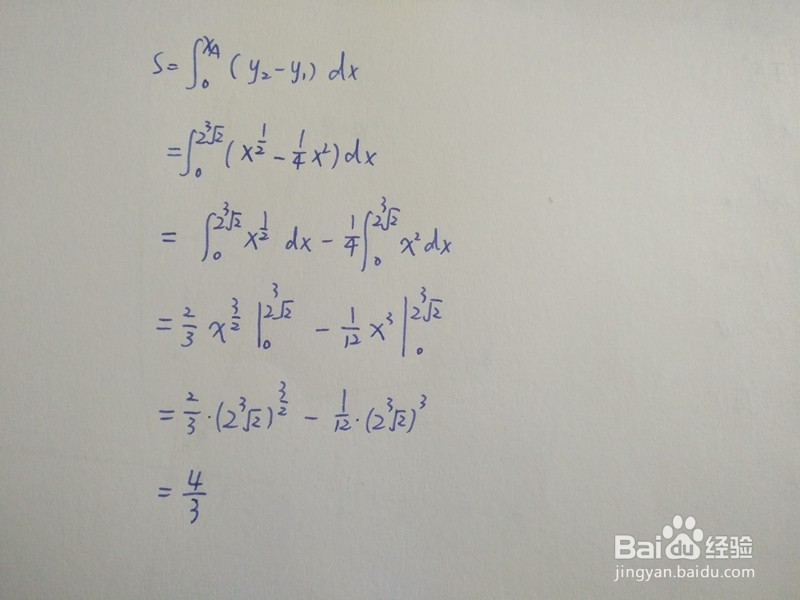 S=∫₀^{x_A} (y₂-y₁) dx
=∫₀^{2∛2} (x^{1/2} - 1/4 x²) dx
= ∫₀^{2∛2} x^{1/2} dx - 1/4 ∫₀^{2∛2} x² dx
= 2/3 x^{3/2} |₀^{2∛2} - 1/12 x³ |₀^{2∛2}
= 2/3 · (2∛2)^{3/2} - 1/12 · (2∛2)³
= 4/3
Bai du 经验
jingyan.baidu.com